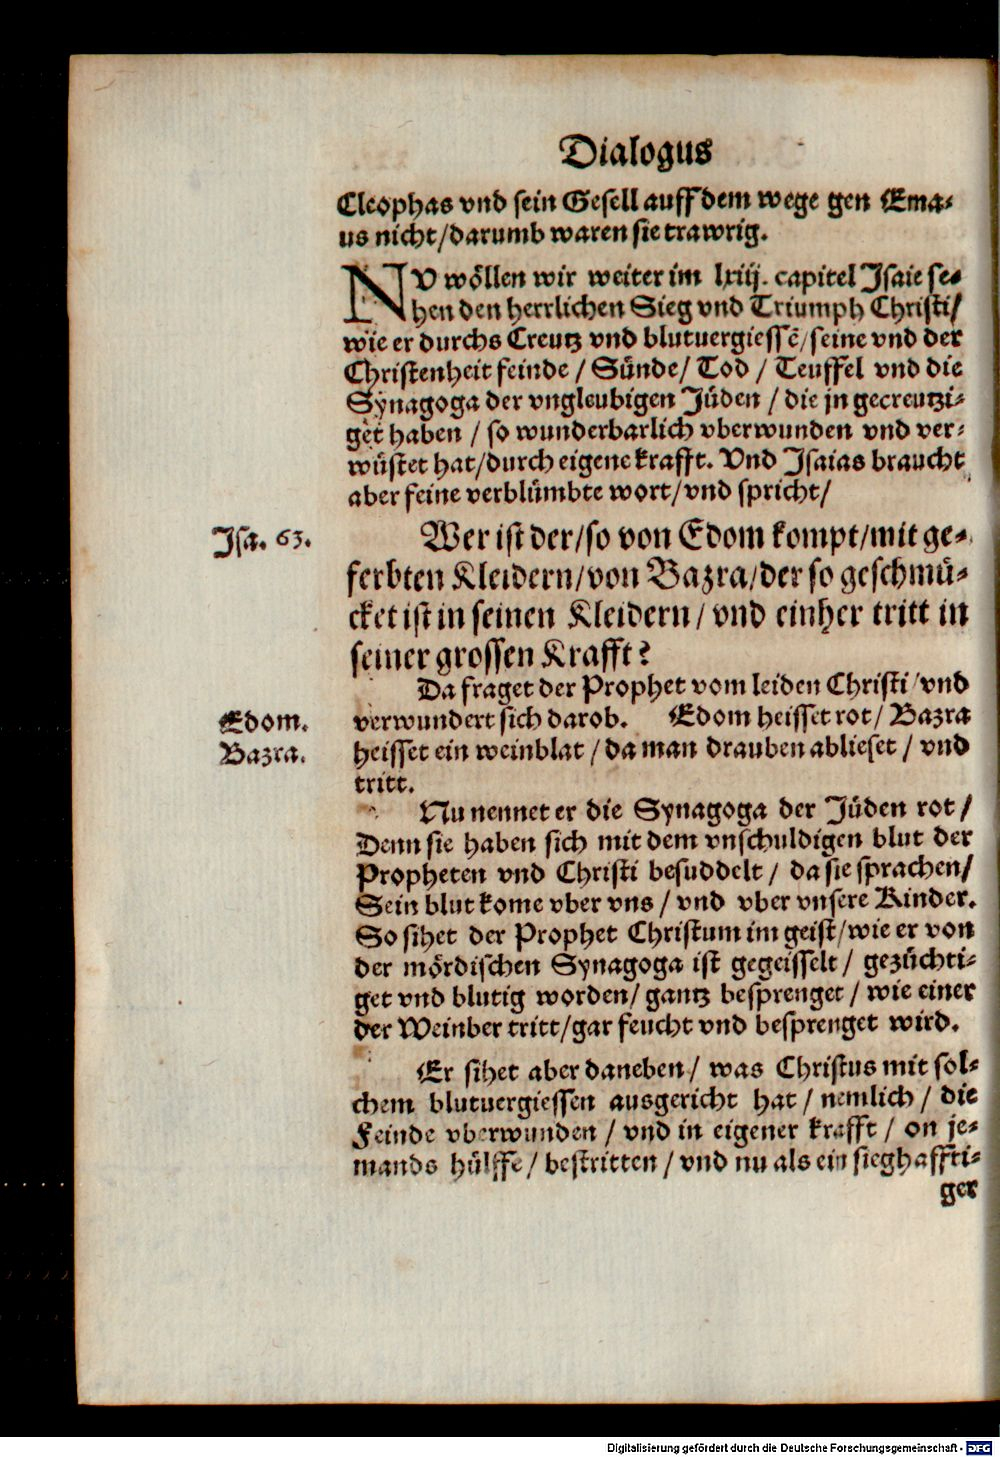 Dialogus
Cleophas vnd sein Gesell auff dem wege gen Ema-
us nicht/darumb waren sie trawrig.
NV wöllen wir weiter im lxiij. capitel Jsaie se-
hen den herrlichen Sieg vnd Triumph Christi/
wie er durchs Creutz vnd blutuergiessẽ/seine vnd der
Christenheit feinde / Sünde/ Tod / Teuffel vnd die
Synagoga der vngleubigen Jüden / die jn gecreutzi-
get haben / so wunderbarlich vberwunden vnd ver-
wüstet hat/durch eigene krafft. Vnd Jsaias braucht
aber feine verblümbte wort/vnd spricht/
Jsa. 63.
Wer ist der/so von Edom kompt/mit ge-
ferbten Kleidern/von Bazra/der so geschmü-
cket ist in seinen Kleidern/ vnd einher tritt in
seiner grossen Krafft?
Da fraget der Prophet vom leiden Christi/vnd
Edom.
verwundert sich darob. Edom heisset rot/ Bazra
Bazra.
heisset ein weinblat / da man drauben ablieset / vnd
tritt.
Nu nennet er die Synagoga der Jüden rot/
Denn sie haben sich mit dem vnschuldigen blut der
Propheten vnd Christi besuddelt / da sie sprachen/
Sein blut kome vber vns / vnd vber vnsere Kinder.
So sihet der Prophet Christum im geist/wie er von
der mördischen Synagoga ist gegeisselt/ gezüchti-
get vnd blutig worden/ gantz besprenget / wie einer
der Weinber tritt/gar feucht vnd besprenget wird.
Er sihet aber daneben/ was Christus mit sol-
chem blutuergiessen ausgericht hat / nemlich / die
Feinde vberwunden / vnd in eigener krafft / on je-
mands hülffe / bestritten / vnd nu als ein sieghaffti-
ger
Digitalisierung gefördert durch die Deutsche Forschungsgemeinschaft - DFG